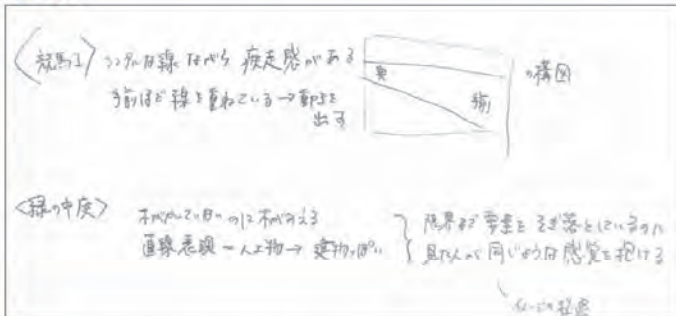 〈競馬1〉 シンプルな線ながら 疾走感がある
手前ほど線を重ねている→動きを
出す
奥
手前
の構図
〈緑の中庭〉 木がかいてないのに木がみえる
直線表現 = 人工物→建物っぽい
限界まで要素をそぎ落としているのに
見た人が同じような感覚を抱ける